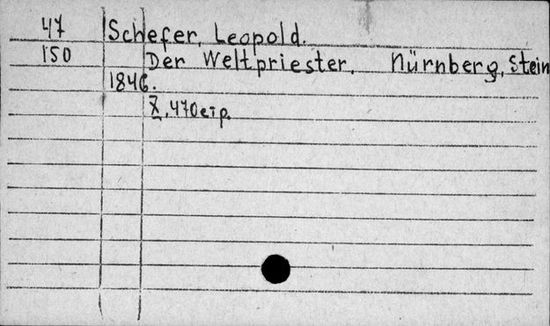 47 Schefer, Leopold.
150 Der Weltpriester. Nürnberg, Stein
1846.
X, 470 p.